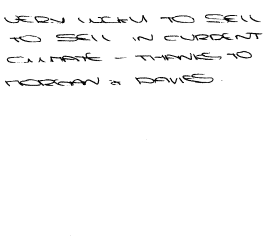 VERY LUCKY TO SELL
TO SELL IN CURRENT
CLIMATE - THANKS TO
MORGAN & DAVIES.